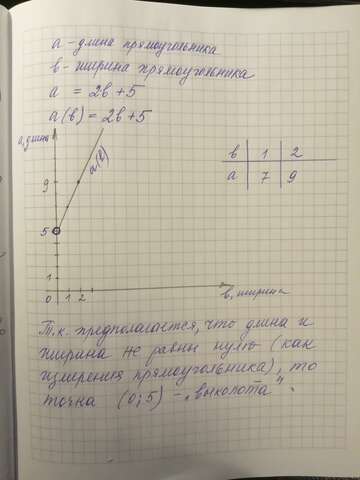 a - длина прямоугольника
b - ширина прямоугольника
a = 2b + 5
a(b) = 2b + 5
a, длина
a(b)
9
5
1
0 1 2
b, ширина
b 1 2
a 7 9
Т.к. предполагается, что длина и
ширина не равны нулю (как
измерения прямоугольника), то
точка (0; 5) - „выколота".